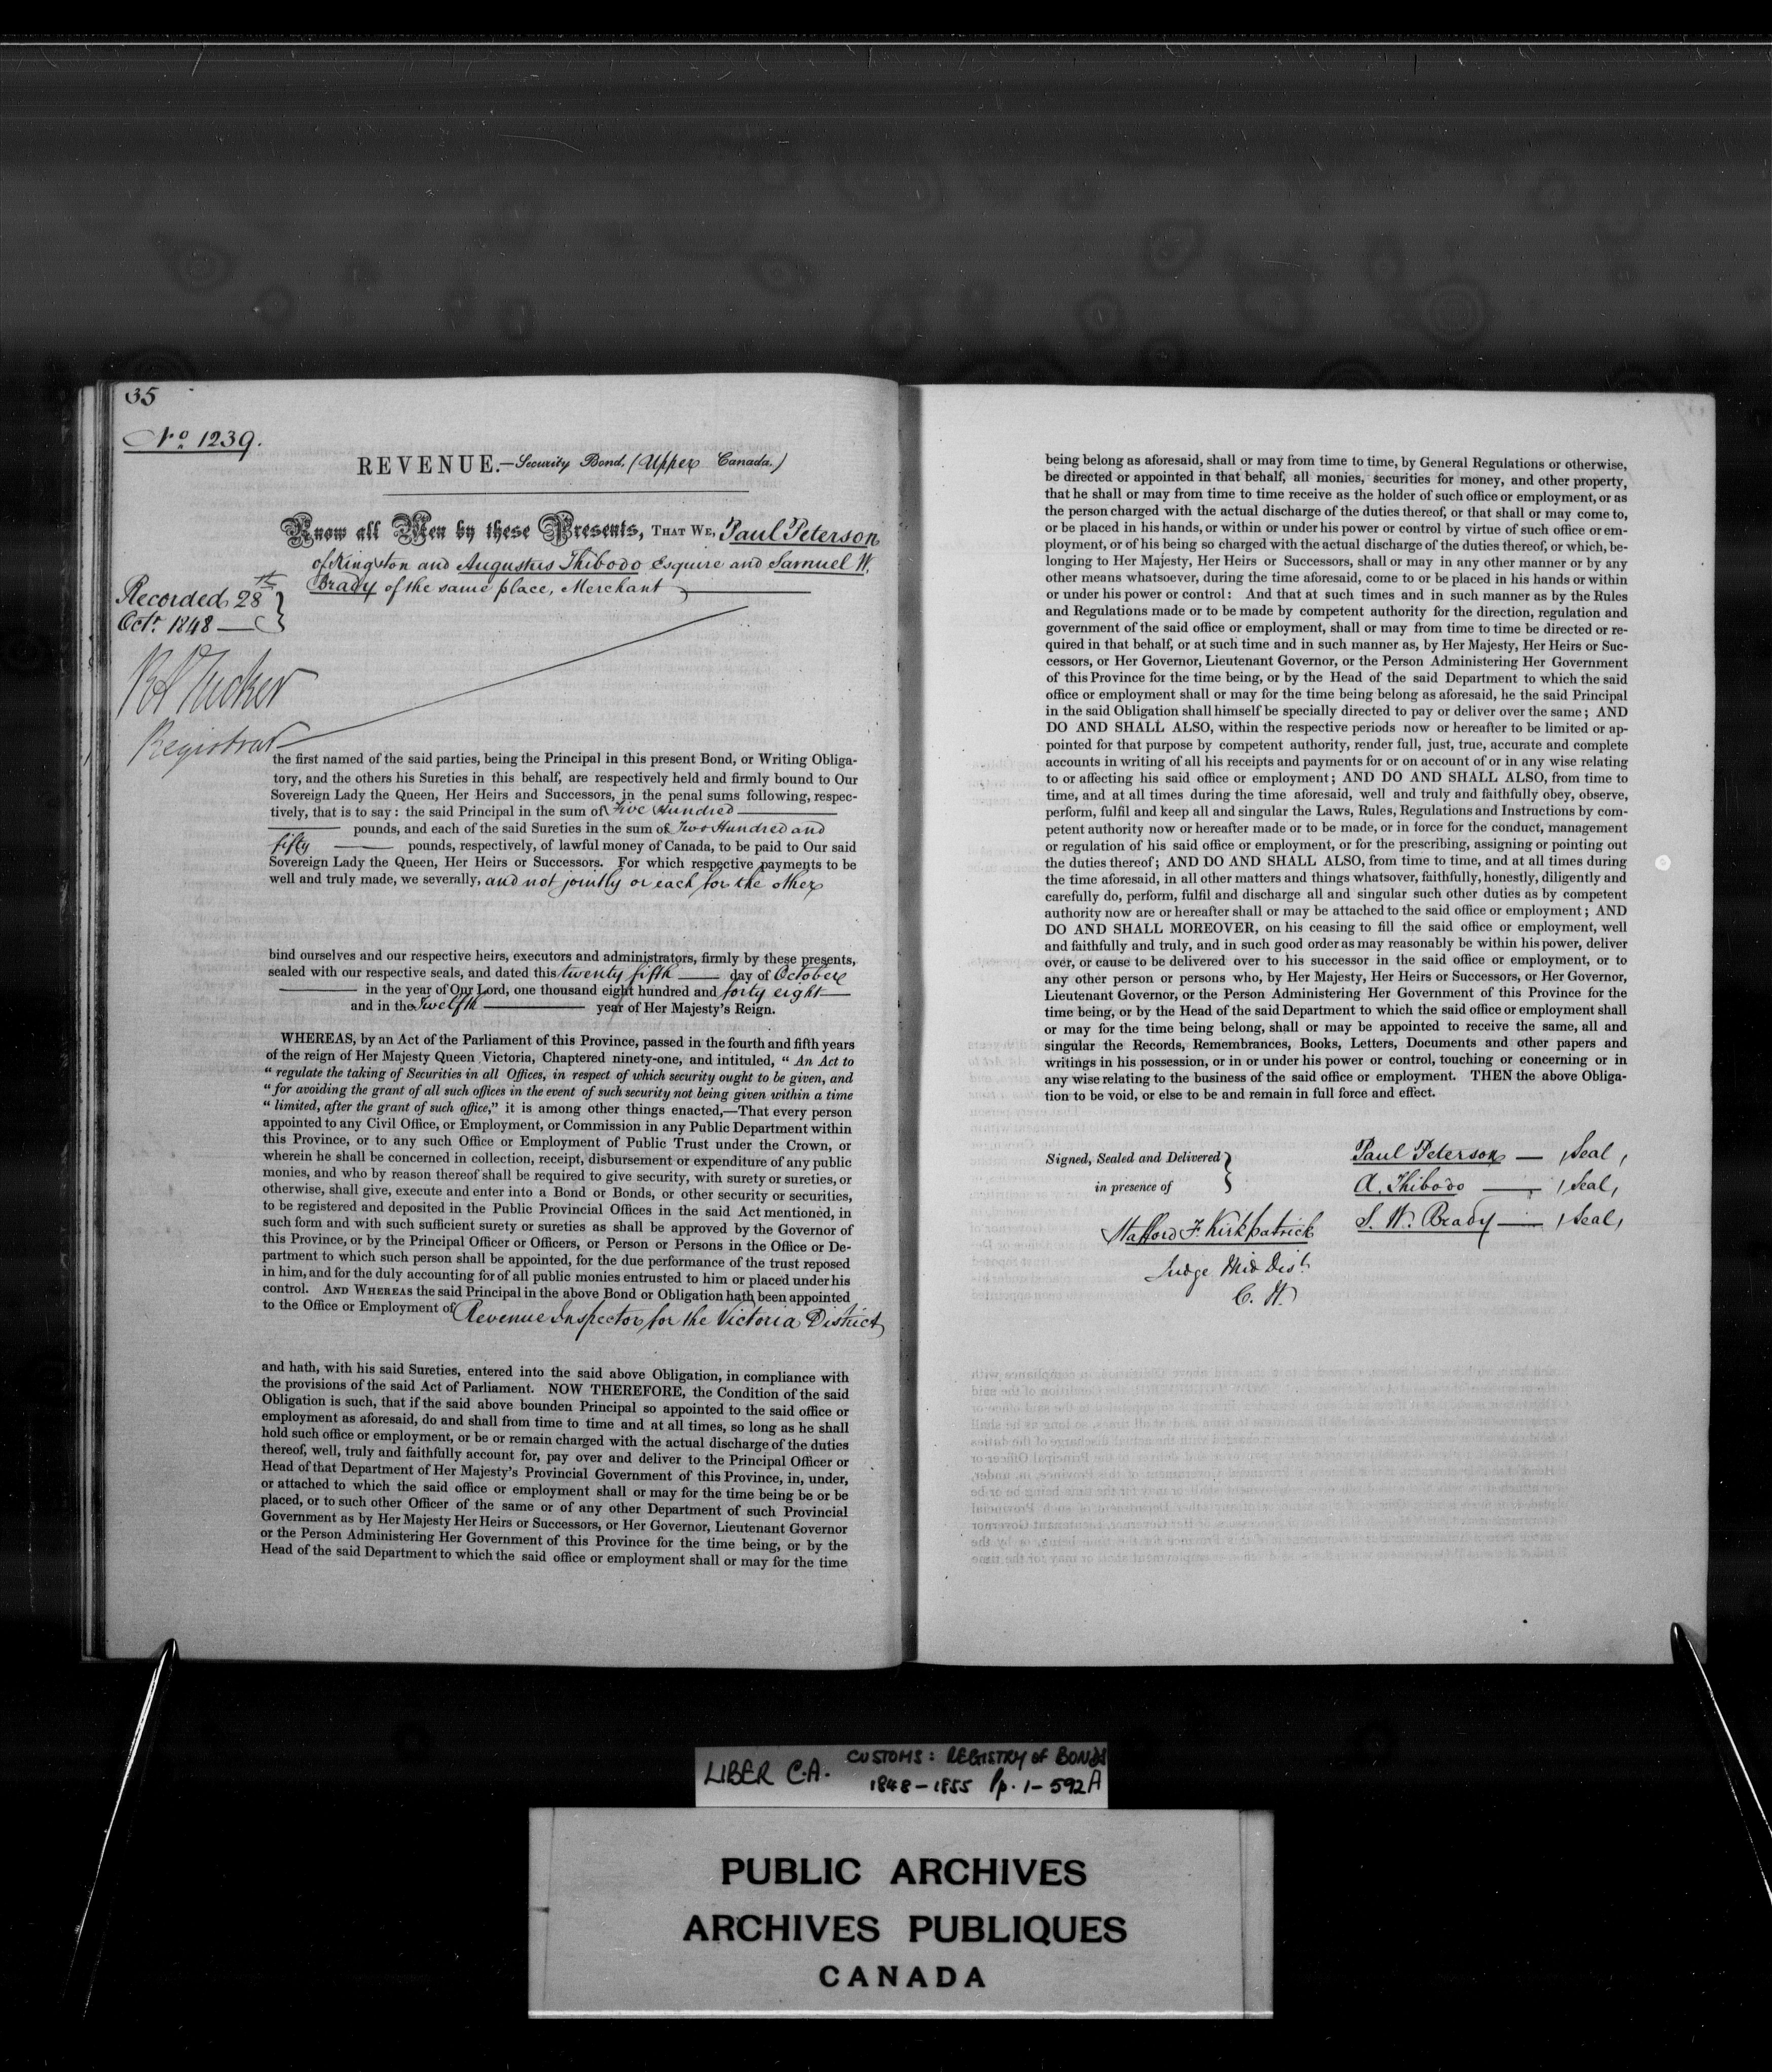 35
No. 1239.
REVENUE.—Security Bond. (Upper Canada.)
Know all Men by these Presents, THAT WE, Paul Peterson
of Kingston and Augustus Thibodo Esquire and Samuel W.
Brady of the same place, Merchant
Recorded 28th
Octr. 1848
R A Tucker
Registrar
the first named of the said parties, being the Principal in this present Bond, or Writing Obliga-
tory, and the others his Sureties in this behalf, are respectively held and firmly bound to Our
Sovereign Lady the Queen, Her Heirs and Successors, in the penal sums following, respec-
tively, that is to say: the said Principal in the sum of Five Hundred
pounds, and each of the said Sureties in the sum of Two Hundred and
fifty pounds, respectively, of lawful money of Canada, to be paid to Our said
Sovereign Lady the Queen, Her Heirs or Successors. For which respective payments to be
well and truly made, we severally, and not jointly or each for the other
bind ourselves and our respective heirs, executors and administrators, firmly by these presents,
sealed with our respective seals, and dated this twenty fifth day of October
in the year of Our Lord, one thousand eight hundred and forty eight
and in the Twelfth year of Her Majesty's Reign.
WHEREAS, by an Act of the Parliament of this Province, passed in the fourth and fifth years
of the reign of Her Majesty Queen Victoria, Chaptered ninety-one, and intituled, " An Act to
" regulate the taking of Securities in all Offices, in respect of which security ought to be given, and
" for avoiding the grant of all such offices in the event of such security not being given within a time
" limited, after the grant of such office," it is among other things enacted,—That every person
appointed to any Civil Office, or Employment, or Commission in any Public Department within
this Province, or to any such Office or Employment of Public Trust under the Crown, or
wherein he shall be concerned in collection, receipt, disbursement or expenditure of any public
monies, and who by reason thereof shall be required to give security, with surety or sureties, or
otherwise, shall give, execute and enter into a Bond or Bonds, or other security or securities,
to be registered and deposited in the Public Provincial Offices in the said Act mentioned, in
such form and with such sufficient surety or sureties as shall be approved by the Governor of
this Province, or by the Principal Officer or Officers, or Person or Persons in the Office or De-
partment to which such person shall be appointed, for the due performance of the trust reposed
in him, and for the duly accounting for of all public monies entrusted to him or placed under his
control. AND WHEREAS the said Principal in the above Bond or Obligation hath been appointed
to the Office or Employment of Revenue Inspector for the Victoria District
and hath, with his said Sureties, entered into the said above Obligation, in compliance with
the provisions of the said Act of Parliament. NOW THEREFORE, the Condition of the said
Obligation is such, that if the said above bounden Principal so appointed to the said office or
employment as aforesaid, do and shall from time to time and at all times, so long as he shall
hold such office or employment, or be or remain charged with the actual discharge of the duties
thereof, well, truly and faithfully account for, pay over and deliver to the Principal Officer or
Head of that Department of Her Majesty's Provincial Government of this Province, in, under,
or attached to which the said office or employment shall or may for the time being be or be
placed, or to such other Officer of the same or of any other Department of such Provincial
Government as by Her Majesty Her Heirs or Successors, or Her Governor, Lieutenant Governor
or the Person Administering Her Government of this Province for the time being, or by the
Head of the said Department to which the said office or employment shall or may for the time
being belong as aforesaid, shall or may from time to time, by General Regulations or otherwise,
be directed or appointed in that behalf, all monies, securities for money, and other property,
that he shall or may from time to time receive as the holder of such office or employment, or as
the person charged with the actual discharge of the duties thereof, or that shall or may come to,
or be placed in his hands, or within or under his power or control by virtue of such office or em-
ployment, or of his being so charged with the actual discharge of the duties thereof, or which, be-
longing to Her Majesty, Her Heirs or Successors, shall or may in any other manner or by any
other means whatsoever, during the time aforesaid, come to or be placed in his hands or within
or under his power or control: And that at such times and in such manner as by the Rules
and Regulations made or to be made by competent authority for the direction, regulation and
government of the said office or employment, shall or may from time to time be directed or re-
quired in that behalf, or at such time and in such manner as, by Her Majesty, Her Heirs or Suc-
cessors, or Her Governor, Lieutenant Governor, or the Person Administering Her Government
of this Province for the time being, or by the Head of the said Department to which the said
office or employment shall or may for the time being belong as aforesaid, he the said Principal
in the said Obligation shall himself be specially directed to pay or deliver over the same; AND
DO AND SHALL ALSO, within the respective periods now or hereafter to be limited or ap-
pointed for that purpose by competent authority, render full, just, true, accurate and complete
accounts in writing of all his receipts and payments for or on account of or in any wise relating
to or affecting his said office or employment; AND DO AND SHALL ALSO, from time to
time, and at all times during the time aforesaid, well and truly and faithfully obey, observe,
perform, fulfil and keep all and singular the Laws, Rules, Regulations and Instructions by com-
petent authority now or hereafter made or to be made, or in force for the conduct, management
or regulation of his said office or employment, or for the prescribing, assigning or pointing out
the duties thereof; AND DO AND SHALL ALSO, from time to time, and at all times during
the time aforesaid, in all other matters and things whatsover, faithfully, honestly, diligently and
carefully do, perform, fulfil and discharge all and singular such other duties as by competent
authority now are or hereafter shall or may be attached to the said office or employment; AND
DO AND SHALL MOREOVER, on his ceasing to fill the said office or employment, well
and faithfully and truly, and in such good order as may reasonably be within his power, deliver
over, or cause to be delivered over to his successor in the said office or employment, or to
any other person or persons who, by Her Majesty, Her Heirs or Successors, or Her Governor,
Lieutenant Governor, or the Person Administering Her Government of this Province for the
time being, or by the Head of the said Department to which the said office or employment shall
or may for the time being belong, shall or may be appointed to receive the same, all and
singular the Records, Remembrances, Books, Letters, Documents and other papers and
writings in his possession, or in or under his power or control, touching or concerning or in
any wise relating to the business of the said office or employment. THEN the above Obliga-
tion to be void, or else to be and remain in full force and effect.
Signed, Sealed and Delivered
in presence of
Stafford F. Kirkpatrick
Judge Mid Dist.
C. W.
Paul Peterson — Seal
A. Thibodo — Seal
S. W. Brady — Seal
LIBER C.A. CUSTOMS: REGISTRY OF BONDS
1848-1855 Pp. 1-592A
PUBLIC ARCHIVES
ARCHIVES PUBLIQUES
CANADA